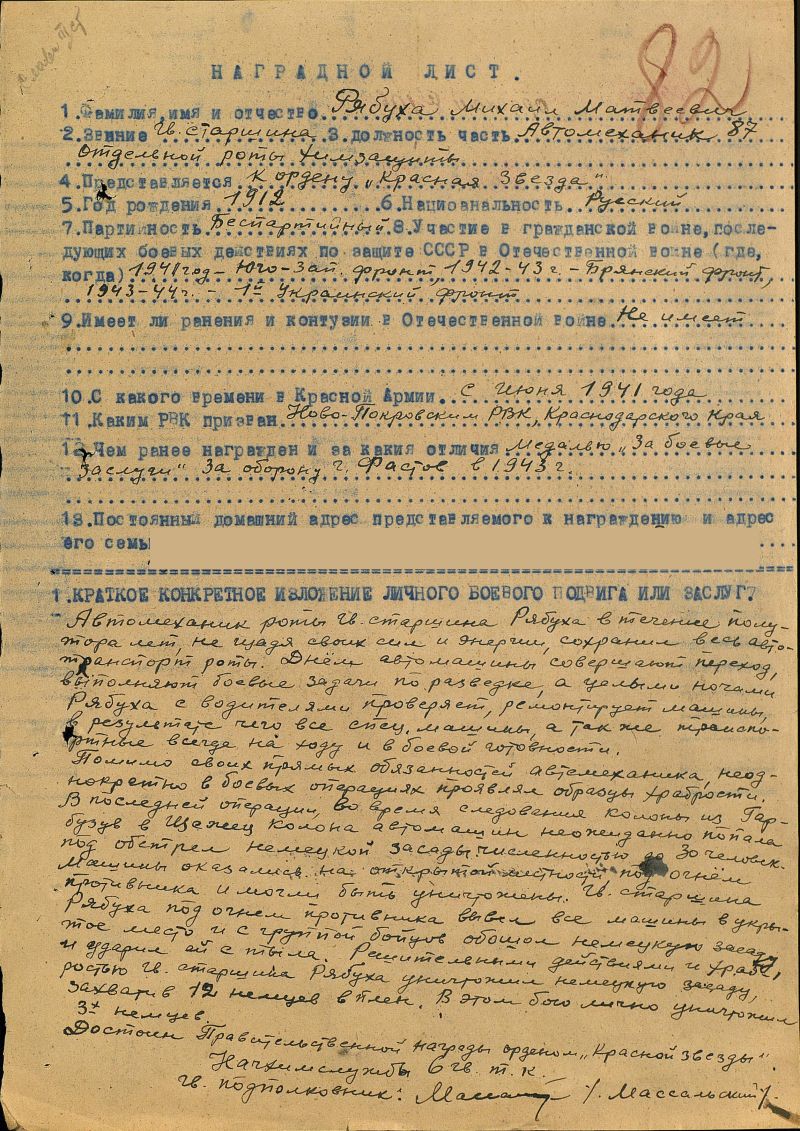 82
НАГРАДНОЙ ЛИСТ.
1.Фамилия,имя и отчество Рябуха Михаил Матвеевич
2.Звание Гв. старшина 3.должность часть Автомеханик 87
отдельной роты химзащиты
4.Представляется к ордену „Красная Звезда"
5.Год рождения 1912 6.Национальность Русский
7.Партийность Беспартийный 8.Участие в гражданской войне,после-
дующих боевых действиях по защите СССР в Отечественной войне (где,
когда) 1941 год - Юго-Зап. фронт, 1942-43 г. - Брянский фронт,
1943-44 г. - 1й Украинский фронт
9.Имеет ли ранения и контузии в Отечественной войне Не имеет
10.С какого времени в Красной Армии с июня 1941 года
11.Каким РВК призван Ново-Покровским РВК, Краснодарского края
12.Чем ранее награжден и за какия отличия Медалью „За боевые
заслуги" за оборону г. Фастов в 1943 г.
13.Постоянный домашний адрес представляемого к награждению и адрес
его семь
1.КРАТКОЕ КОНКРЕТНОЕ ИЗЛОЖЕНИЕ ЛИЧНОГО БОЕВОГО ПОДВИГА ИЛИ ЗАСЛУГ.
Автомеханик роты гв. старшина Рябуха в течение полу-
тора лет, не щадя своих сил и энергии, сохранил весь авто-
транспорт роты. Днём автомашины совершают переход,
выполняют боевые задачи по разведке, а целыми ночами
Рябуха с водителями проверяет, ремонтирует машины,
в результате чего все спец. машины, а так же транспо-
ртные всегда на ходу и в боевой готовности.
Помимо своих прямых обязанностей автомеханика, неод-
нократно в боевых операциях проявлял образцы храбрости.
В последней операции, во время следования колоны из Гар-
бузув в Щежец колона автомашин неожиданно попала
под обстрел немецкой засады численностью до 30 человек.
Машины оказались на открытой местности под огнём
противника и могли быть уничтожены. Гв. старшина
Рябуха под огнём противника вывел все машины в укры-
тое место и с группой бойцов обошол немецкую засаду
и ударил ей с тыла. Решительными действиями и храб-
ростью гв. старшина Рябуха уничтожил немецкую засаду,
захватив 12 немцев в плен. В этом бою лично уничтожил
3х немцев.
Достоин Правительственной награды орденом „Красной звезды".
Начхимслужбы 6 гв. т. к.
гв. подполковник: /. Массальский/.